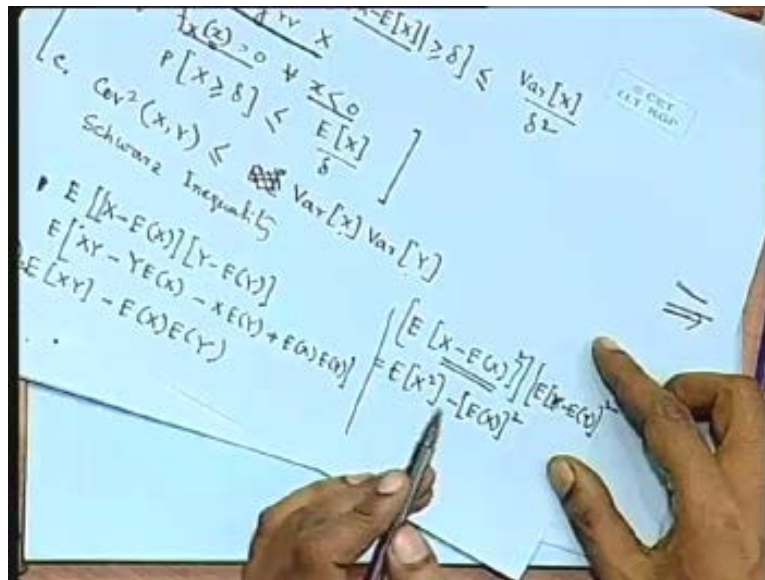 x-E[x]| ≥ δ] ≤ Var[x] / δ²
X
f_X(x) = 0 ∀ x < 0
P[X ≥ δ] ≤ E[X] / δ ]
c. Cov²(X,Y) ≤ Var[X] Var[Y]
Schwarz Inequality
E [[X-E(X)] [Y-E(Y)]]
E [XY - YE(X) - XE(Y) + E(X)E(Y)]
E[XY] - E(X)E(Y)
[E [X-E(X)]²] [E[Y-E(Y)]²
= E[X²] - [E(X)]²
⇒
© CET
I.I.T. KGP